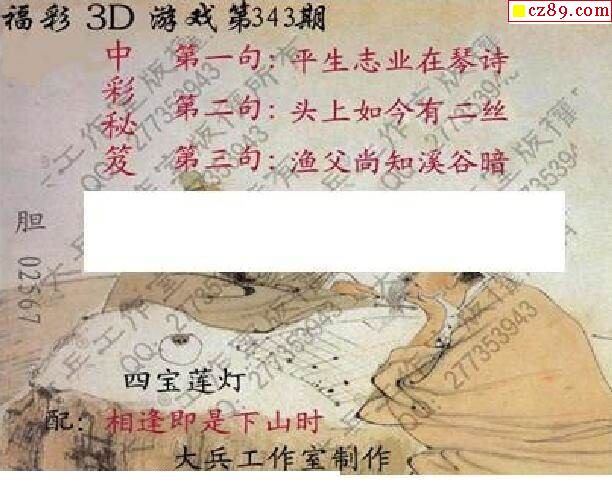 福彩 3D 游戏第343期
cz89.com
中彩秘笈
第一句：平生志业在琴诗
第二句：头上如今有二丝
第三句：渔父尚知溪谷暗
胆 02567
四宝莲灯
配：相逢即是下山时
大兵工作室制作
大兵工作室版权所有
QQ：277353943